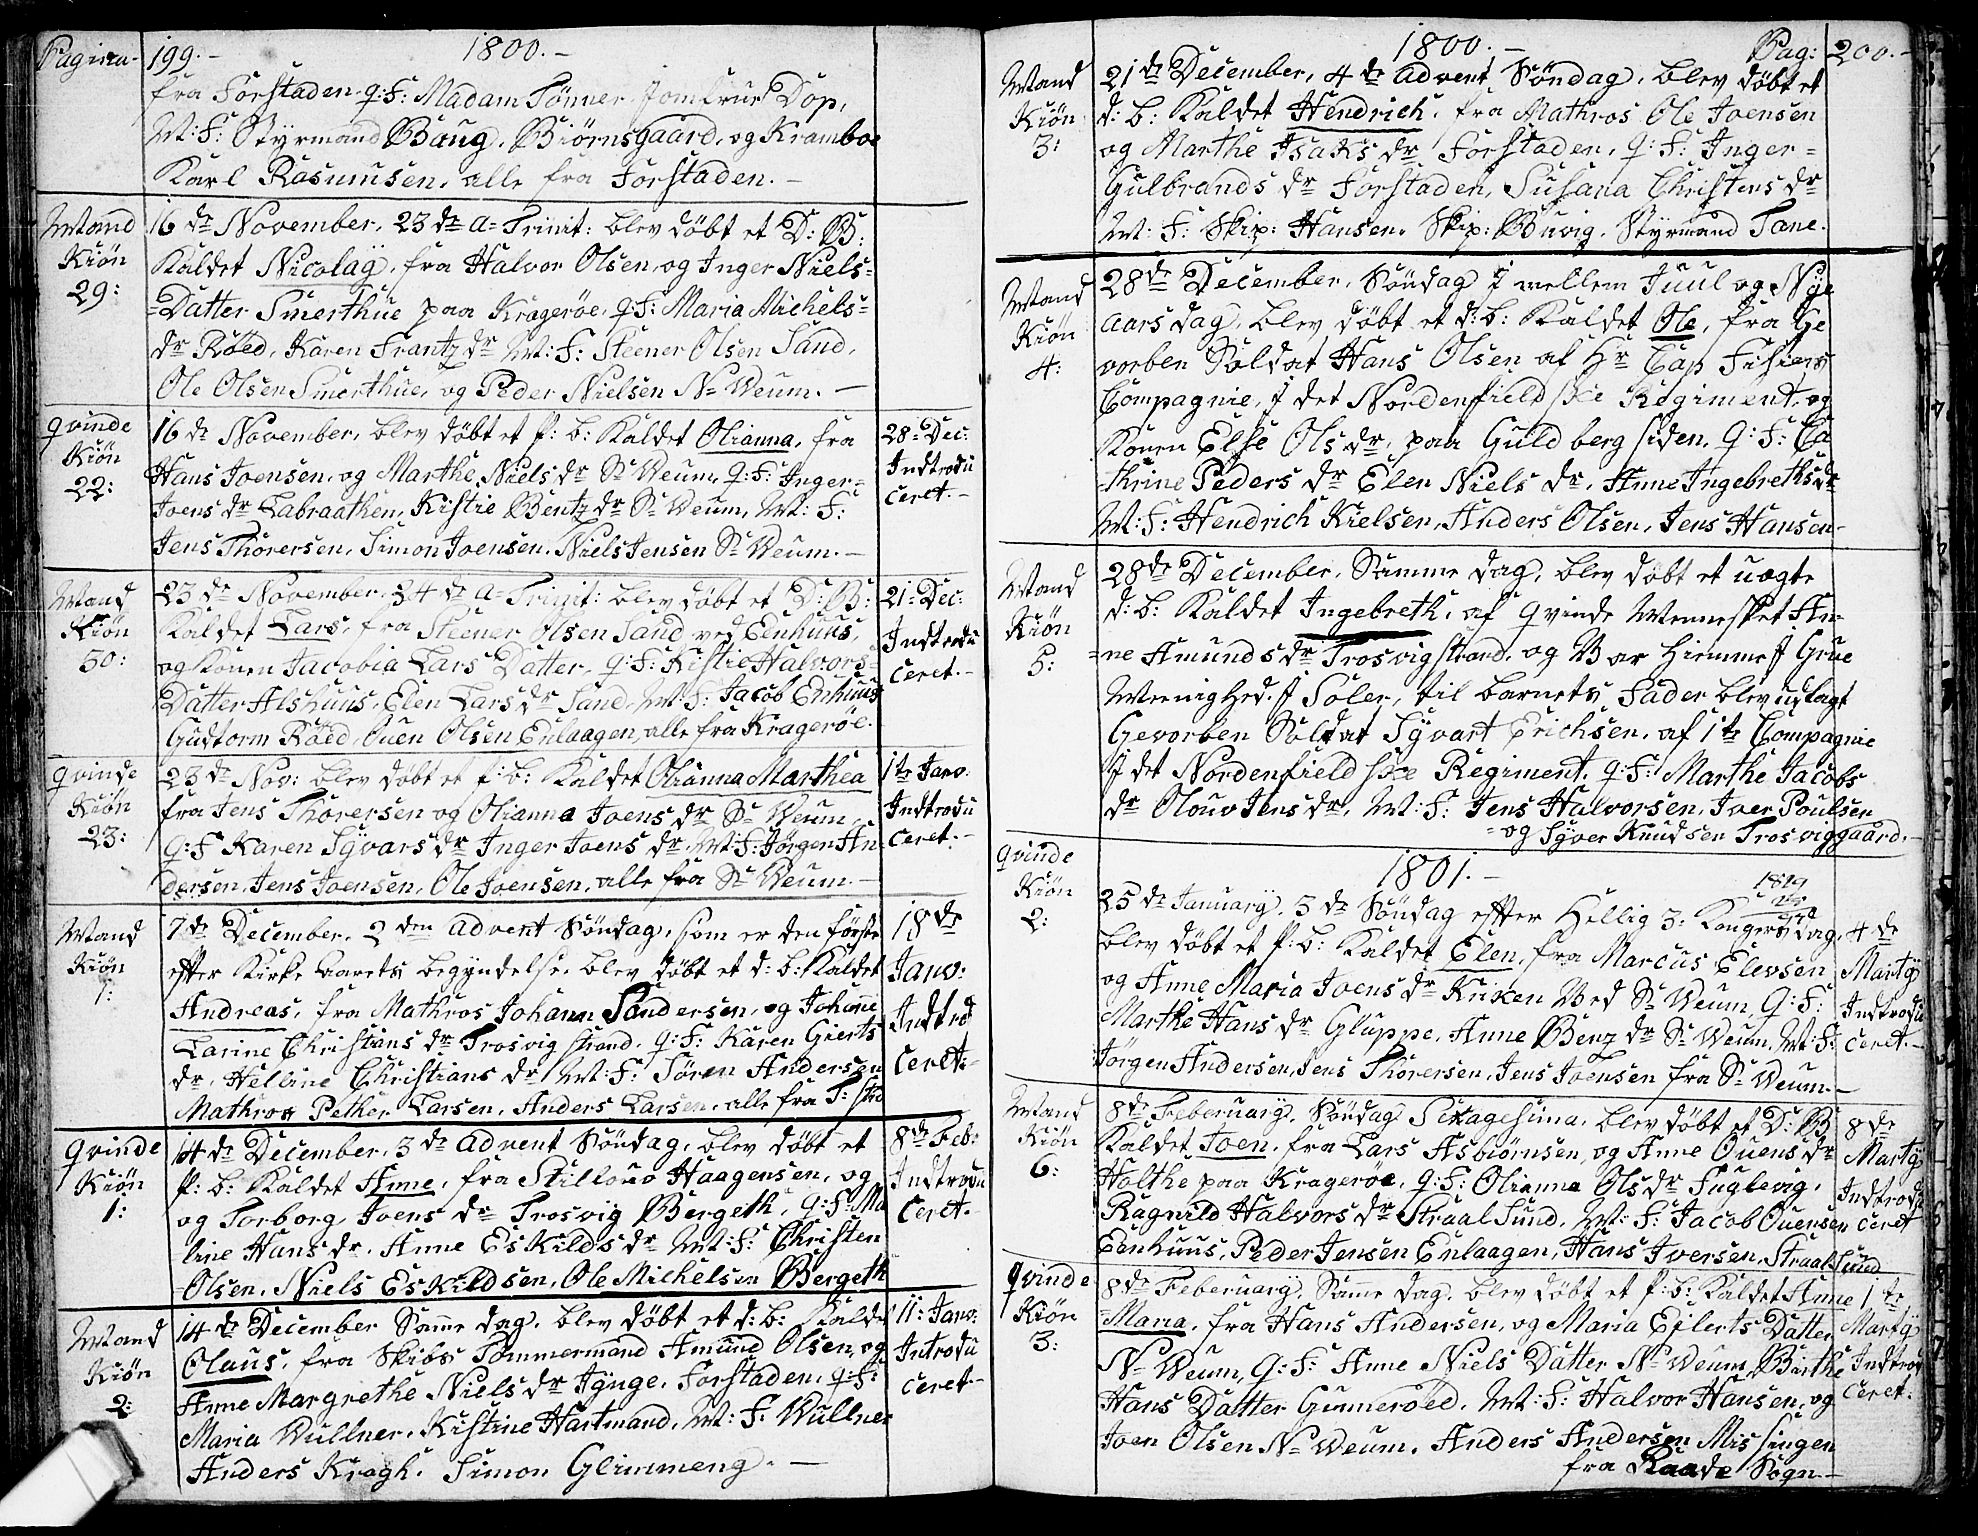 Pagina 199. 1800.
fra Forstaden. q: F: Madam Tønner. Jomfrue Dop,
M: F: Styrmand Baug, Biørnsgaard, og Kramboe
Karl Rasmusen, alle fra Forstaden.
Mand Kiøn 29:
16 de November, 23 de a= Trinit: blev døbt et D: B:
Kaldet Nicolaÿ, fra Halvor Olsen, og Inger Niels=
=Datter Smerthue paa Kragerøe, q: F: Maria Michels=
dr Røed, Karen Frantz dr M: F: Steener Olsen Sand,
Ole Olsen Smerthue, og Peder Nielsen N= Weum.
qvinde Kiøn 22:
16 de November, blev døbt et p: b: Kaldet Olianna, fra
Hans Joensen, og Marthe Niels dr S= Weum, q: F: Inger=
Joens dr Labraathen, Kistie Bentz dr S= Weum, M: F:
Jens Thorersen, Simon Joensen, Niels Jensen S= Weum.
28= Dec: Indtroduceret.
Mand Kiøn 30:
23 de November, 24 de a= Trinit: blev døbt et D: B:
Kaldet Lars, fra Steener Olsen Sand ved Eenhuus,
og Konen Jacobia Lars Datter, q: F: Kistie Halvors=
Datter Alshuus, Elen Lars dr Sand. M: F: Jacob Enhuus
Gudtorm Røed, Ouen Olsen Enlaagen, alle fra Kragerøe.
21= Dec: Indtroduceret.
qvinde Kiøn 23:
23 de Nov: blev døbt et p: b: Kaldet Olianna Marthea
fra Jens Thorersen og Olianna Joens dr S= Weum,
q: F Karen Sÿvars dr Inger Joens dr. M: F: Jørgen An
dersen, Jens Joensen, Ole Joensen, alle fra S= Weum.
1te Janv: Indtroduceret.
Mand Kiøn 1:
7de December, 2 den advent Søndag, som er den første
efter Kirke Aarets begyndelse, blev døbt et d: b: Kaldet
Andreas, fra Mathros Johann Sandersen, og Johanne
Larine Christians dr Trosvig strand. q: F: Karen Gierts
dr, Helline Christians dr M: F: Søren Andersen
Mathros Pether Larsen, Anders Larsen, alle fra T: strd
18 de Janv: Indtrodceret.
qvinde Kiøn 1:
14 de December, 3 de Advent Søndag, blev døbt et
p: b: Kaldet Anne, fra Stillouv Haagensen, og
og Torborg Joens dr Trosvig Bergeth, q: F: Ma
line Hans dr, Anne Eskilds dr M: F: Christen
Olsen, Niels Eskildsen, Ole Michelsen Bergeth
8de Feb: Indtroduceret.
Mand Kiøn 2:
14 de December Samme dag, blev døbt et d: b: Kaldet
Olaus, fra Skibs Tømmermand Amund Olsen, og
Anne Margrethe Niels dr Iÿnge, Forstaden, q: F:
Maria Wullner, Kistine Hartmand, M: F: Wullner
Anders Kragh, Simon Glimmeng.
11: Janv: Introduceret.
1800. Pag: 200.
Mand Kiøn 3:
21 de December, 4 de Advent Søndag, blev døbt et
d: b: Kaldet Hendrich, fra Mathros Ole Joensen
og Marthe Isaks dr Forstaden, q: F: Inger=
Gulbrands dr Forstaden, Susana Christens dr
M: F: Skip: Hansen, Skip: Buvig, Styrmand Tane.
Mand Kiøn 4:
28 de December, Søndag I mellem Juul og Nÿe
aars dag, blev døbt et d: b: Kaldet Ole, fra Ge
vorben Soldat Hans Olsen af Hr Cap Fishers
Compagnie, I det Nordenfieldske Regiment, og
Konen Else Ols dr, paa Guldbergsiden, q: F: Ca
thrine Peders dr Elen Niels dr, Anne Ingebreths dr
M: F: Hendrich Kielsen, Anders Olsen, Jens Hansen
Mand Kiøn 5:
28 de December, Samme dag, blev døbt et uægte
d: b: Kaldet Ingebreth, af qvinde Mennesket An-
=ne Amunds dr Trosvig strand, og Var Hiemme I Grue
Meenighed I Soler, til barnets Fader blev udlagt
Gevorben Soldat Sÿvart Erichsen, af 1 te Compagnie
I det Nordenfieldske Regiment, q: F: Marthe Jacobs
dr Olouv Jens dr, M: F: Jens Halvorsen, Iver Poulsen
= og Sÿver Knudsen Trosviggaard.
1801.
qvinde Kiøn 2:
1819
25 de Januarÿ, 3 de Søndag efter Hellig 3: Kongers dag,
blev døbt et p: b: Kaldet Elen, fra Marcus Elevsen
og Anne Maria Joens dr Krixen Ved S= Weum, q: F:
Marthe Hans dr Gluppe, Anne Benz dr S= Weum, M: F:
Jørgen Andersen, Jens Thorersen, Jens Joensen fra S= Weum
4 de Martÿ Indtroduceret.
Mand Kiøn 6:
8de Februarÿ, Søndag Sexagesima, blev døbt et D: B
Kaldet Joen, fra Lars Asbiørnsen, og Anne Ouens dr
Holthe paa Kragerøe, q: F: Olianna Ols dr Fuglevig,
Ragnild Halvors dr Straal Sund, M: F: Jacob Ouensen
Eenhuus, Peder Jensen Enlaagen, Hans Iversen, Straalsund
8 de Martÿ Indtroduceret
qvinde Kiøn 3:
8de Februarÿ, Samme dag, blev døbt et p: b: Kaldet Anne
=Maria, fra Hans Andersen, og Maria Ejlerts Datter
N= Weum, q: F: Anne Niels Datter N= Weum, Barthe
Hans Datter Gunnerøed, M: F: Halvor Hansen, og
Joen Olsen N= Weum, Anders Andersen Missingen
fra Raade Sogn.
1 te Martÿ Indtroduceret.